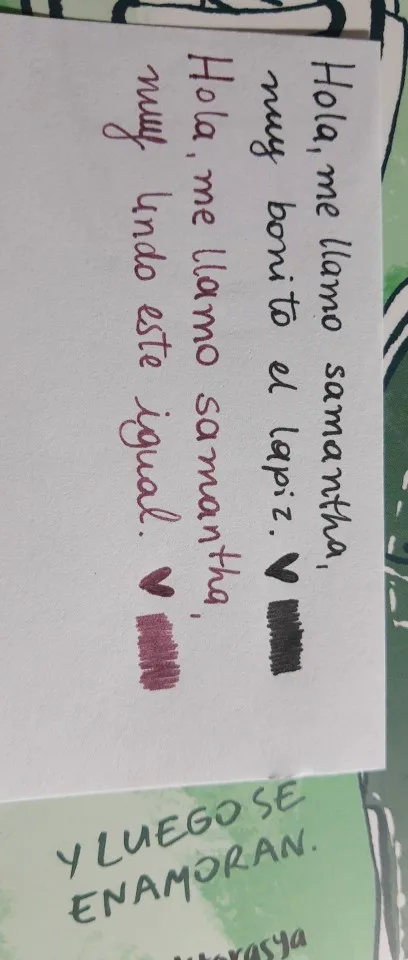 Hola, me llamo samantha,
muy bonito el lapiz. ♥
Hola, me llamo samantha,
muy lindo este igual. ♥
Y LUEGO SE
ENAMORAN.